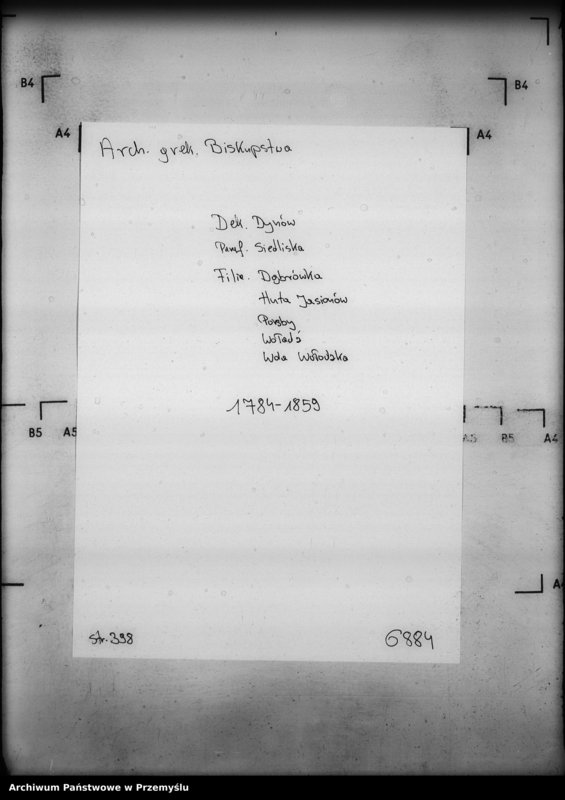 B4
B4
A4
A4
Arch. grek. Biskupstwa
Dek. Dynów
Paraf. Siedliska
Filie. Dąbrówka
Huta Jasionów
Poręby
Wołodź
Wola Wołodzka
1784-1859
B5 A5
A5 B5 A4
A4
str. 398
6884
Archiwum Państwowe w Przemyślu